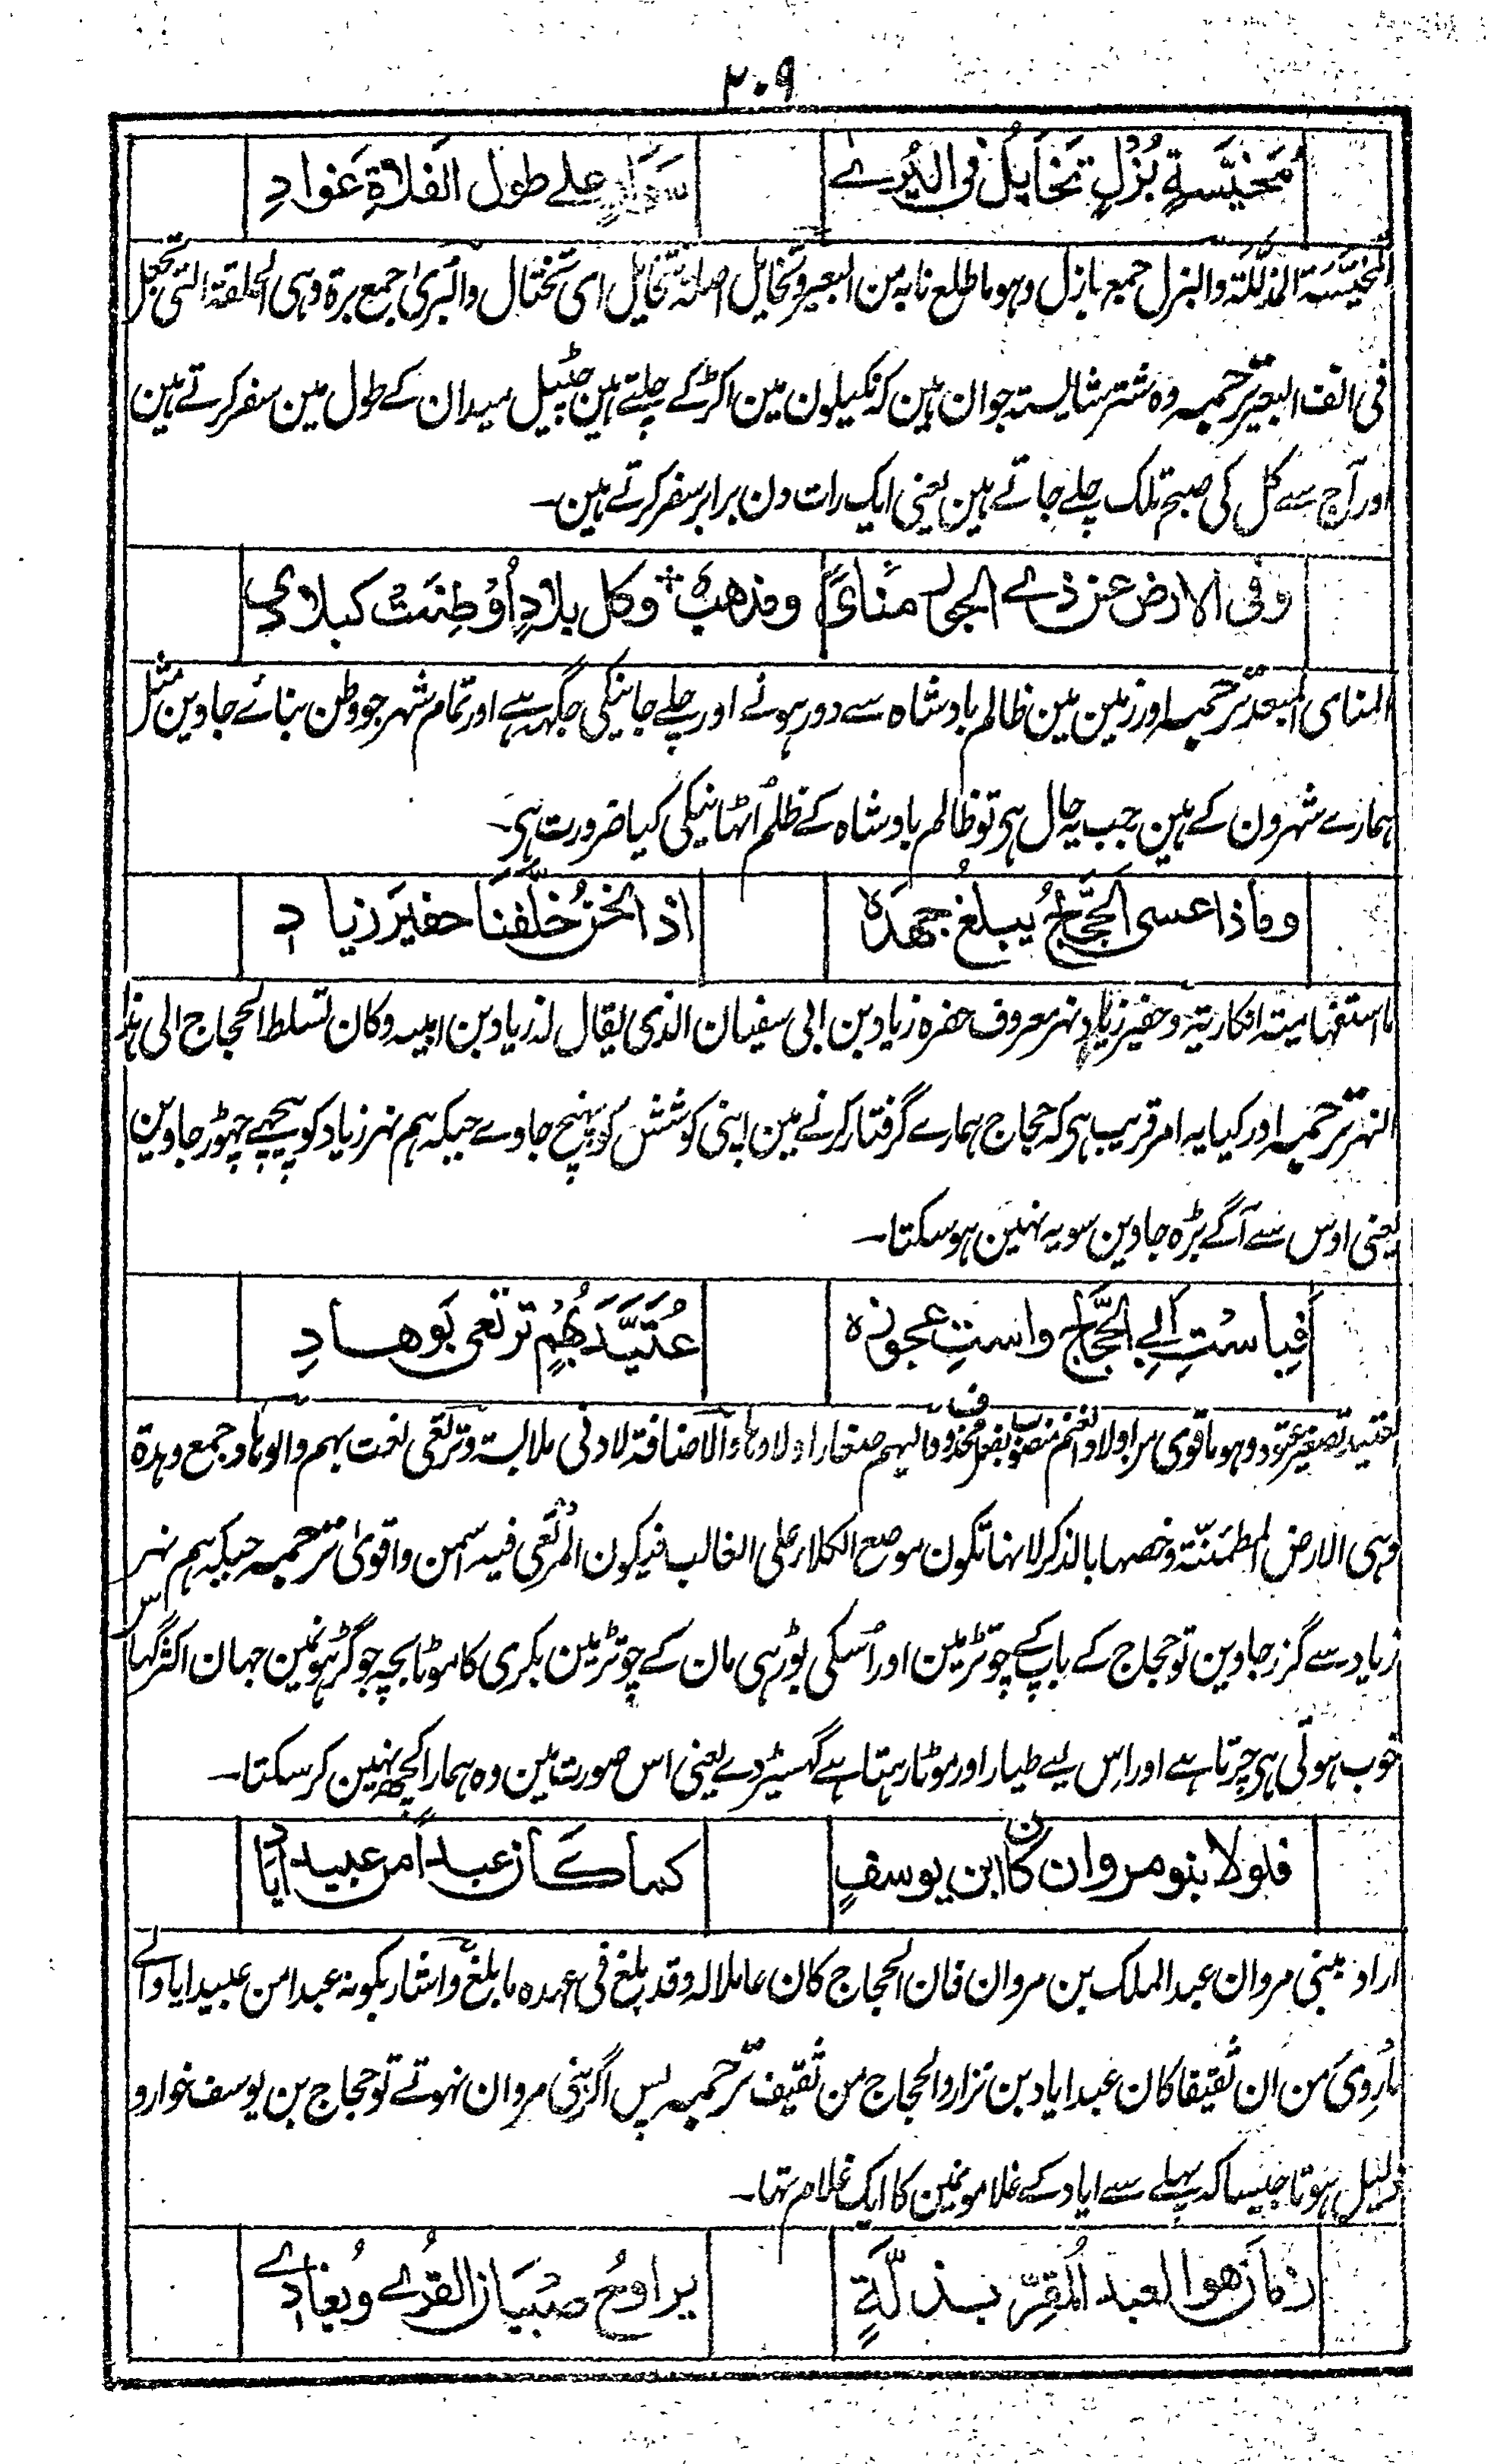 ۲۰۹
مُخَيَّسَةٍ بُزْلٍ تَخَايَلُ فى البُرے سَوَارٍ علے طول الفلاةِ غَوادِ
المخيَّسَة المذلَّلة والبزل جمع بازل وہو ما طلع نابہ من البعير وتخايل اصلہ تتخايل اى تختال والبُرىٰ جمع برة وہى الحلقة التى تجعل
فى انف البعير ترجمہ وہ شتر شایستہ جوان ہین کہ نکیلون مین اکڑ کے چلتے ہین چٹیل میدان کے طول مین سفر کرتے ہین
اور آج سے کل کی صبح تلک چلے جاتے ہین یعنی ایک رات دن برابر سفر کرتے ہین۔
وفى الارض عن ذے الجور مَنأىً ومذهبٌ * وكل بلادٍ أُوْطِنَتْ كبلادي
المنای المبعد ترجمہ اور زمین مین ظالم بادشاہ سے دور ہونے اور چلے جانیکی جگہہ ہے اور تمام شہر جو وطن بنائے جاوین مثل
ہمارے شہرون کے ہین جب یہ حال ہی تو ظالم بادشاہ کے ظلم اُٹہانیکی کیا ضرورت ہی۔
وماذا عسى الحَجَّاجُ يبلغُ جهدَهٗ اذا نحنُ خلَّفنَا حفيرَ زيادِ
ما استفہامیتہ انکاریتہ وحفیر زیاد نہر معروف حفرہ زیاد بن ابی سفیان الذی یقال لہ زیاد بن ابیہ وکان تسلط الحجاج الی ہذا
النہر ترجمہ اور کیا یہ امر قریب ہی کہ حجاج ہمارے گرفتار کرنے مین اپنی کوشش کو پہنچ جاوے جبکہ ہم نہر زیاد کو پیچہے چہوڑ جاوین
یعنی اوس سے آگے بڑہ جاوین سو یہ نہین ہوسکتا۔
فَباسْتِ اَبِے الحَجَّاجِ واستِ عجوزہ عُتَيَّدَ بُهْمٍ ترتعى بَوهادِ
العتيد تصغير عتود وہو ما قوی من اولاد الغنم منصوب بفعل محذوف والبہم صغار اولادہا والاضافة لادنی ملابستہ وترتعی نعت بہم والوہاد جمع وہدة
وہی الارض المطمئنّة وخصہا بالذکر لانہا تکون موضع الکلأ علی الغالب فیکون المرتعی فیہ اسمن واقویٰ ترجمہ جبکہ ہم نہر
زیاد سے گزر جاوین تو حجاج کے باپ کے چوتڑ مین اور اُسکی بوڑہی مان کے چوتڑ مین بکری کا موٹا بچہ جو گڑہونمین جہان اکثر گہاس
خوب ہوتی ہی چرتا ہے اور اس لیے طیار اور موٹا رہتا ہے گہسیڑ دے یعنی اس صورت مین وہ ہمارا کچہہ نہین کرسکتا۔
فلولا بنو مروان كان ابن يوسفٍ كما كان عبداً من عبيد اياد
اراد ببنی مروان عبد الملک بن مروان فان الحجاج کان عاملا لہ وقد بلغ فی عہدہ ما بلغ واشار بکونہ عبدا من عبید ایاد الے
ما رُوِیَ من ان ثقیفا کان عبد ایاد بن نزار والحجاج من ثقیف ترجمہ پس اگر بنی مروان نہوتے تو حجاج بن یوسف خوار و
ذلیل ہوتا جیسا کہ پہلے سے ایاد کے غلامونمین کا ایک غلام تہا۔
زمان هو العبد المُقِرُّ بذلّةٍ يراوحُ صِبْيَانَ القُرٰے ويُغادِے